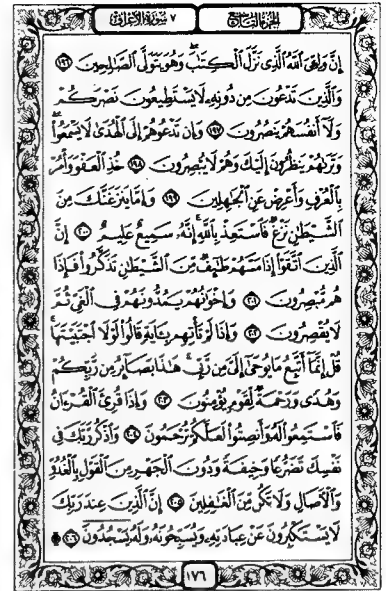 الجزء التاسع
٧ سورة الأعراف
إِنَّ وَلِـِّۧىَ ٱللَّهُ ٱلَّذِى نَزَّلَ ٱلْكِتَـٰبَ وَهُوَ يَتَوَلَّى ٱلصَّـٰلِحِينَ ١٩٦
وَٱلَّذِينَ تَدْعُونَ مِن دُونِهِۦ لَا يَسْتَطِيعُونَ نَصْرَكُمْ
وَلَآ أَنفُسَهُمْ يَنصُرُونَ ١٩٧ وَإِن تَدْعُوهُمْ إِلَى ٱلْهُدَىٰ لَا يَسْمَعُوا۟
وَتَرَىٰهُمْ يَنظُرُونَ إِلَيْكَ وَهُمْ لَا يُبْصِرُونَ ١٩٨ خُذِ ٱلْعَفْوَ وَأْمُرْ
بِٱلْعُرْفِ وَأَعْرِضْ عَنِ ٱلْجَـٰهِلِينَ ١٩٩ وَإِمَّا يَنزَغَنَّكَ مِنَ
ٱلشَّيْطَـٰنِ نَزْغٌ فَٱسْتَعِذْ بِٱللَّهِ إِنَّهُۥ سَمِيعٌ عَلِيمٌ ٢٠٠ إِنَّ
ٱلَّذِينَ ٱتَّقَوْا۟ إِذَا مَسَّهُمْ طَـٰٓئِفٌ مِّنَ ٱلشَّيْطَـٰنِ تَذَكَّرُوا۟ فَإِذَا
هُم مُّبْصِرُونَ ٢٠١ وَإِخْوَٰنُهُمْ يَمُدُّونَهُمْ فِى ٱلْغَىِّ ثُمَّ
لَا يُقْصِرُونَ ٢٠٢ وَإِذَا لَمْ تَأْتِهِم بِـَٔايَةٍ قَالُوا۟ لَوْلَا ٱجْتَبَيْتَهَا
قُلْ إِنَّمَآ أَتَّبِعُ مَا يُوحَىٰٓ إِلَىَّ مِن رَّبِّى هَـٰذَا بَصَآئِرُ مِن رَّبِّكُمْ
وَهُدًى وَرَحْمَةٌ لِّقَوْمٍ يُؤْمِنُونَ ٢٠٣ وَإِذَا قُرِئَ ٱلْقُرْءَانُ
فَٱسْتَمِعُوا۟ لَهُۥ وَأَنصِتُوا۟ لَعَلَّكُمْ تُرْحَمُونَ ٢٠٤ وَٱذْكُر رَّبَّكَ فِى
نَفْسِكَ تَضَرُّعًا وَخِيفَةً وَدُونَ ٱلْجَهْرِ مِنَ ٱلْقَوْلِ بِٱلْغُدُوِّ
وَٱلْـَٔاصَالِ وَلَا تَكُن مِّنَ ٱلْغَـٰفِلِينَ ٢٠٥ إِنَّ ٱلَّذِينَ عِندَ رَبِّكَ
لَا يَسْتَكْبِرُونَ عَنْ عِبَادَتِهِۦ وَيُسَبِّحُونَهُۥ وَلَهُۥ يَسْجُدُونَ ٢٠٦
١٧٦